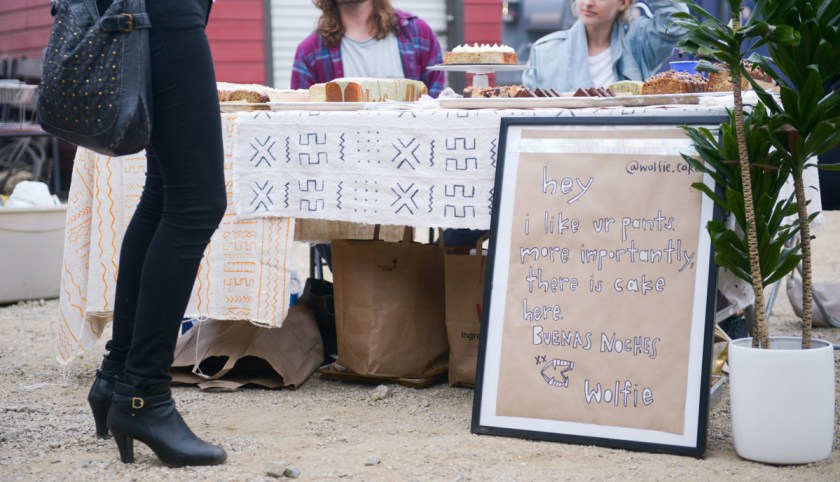 @wolfie.cake
hey
i like ur pants.
more importantly,
there is cake
here.
BUENAS NOCHES
xx
Wolfie